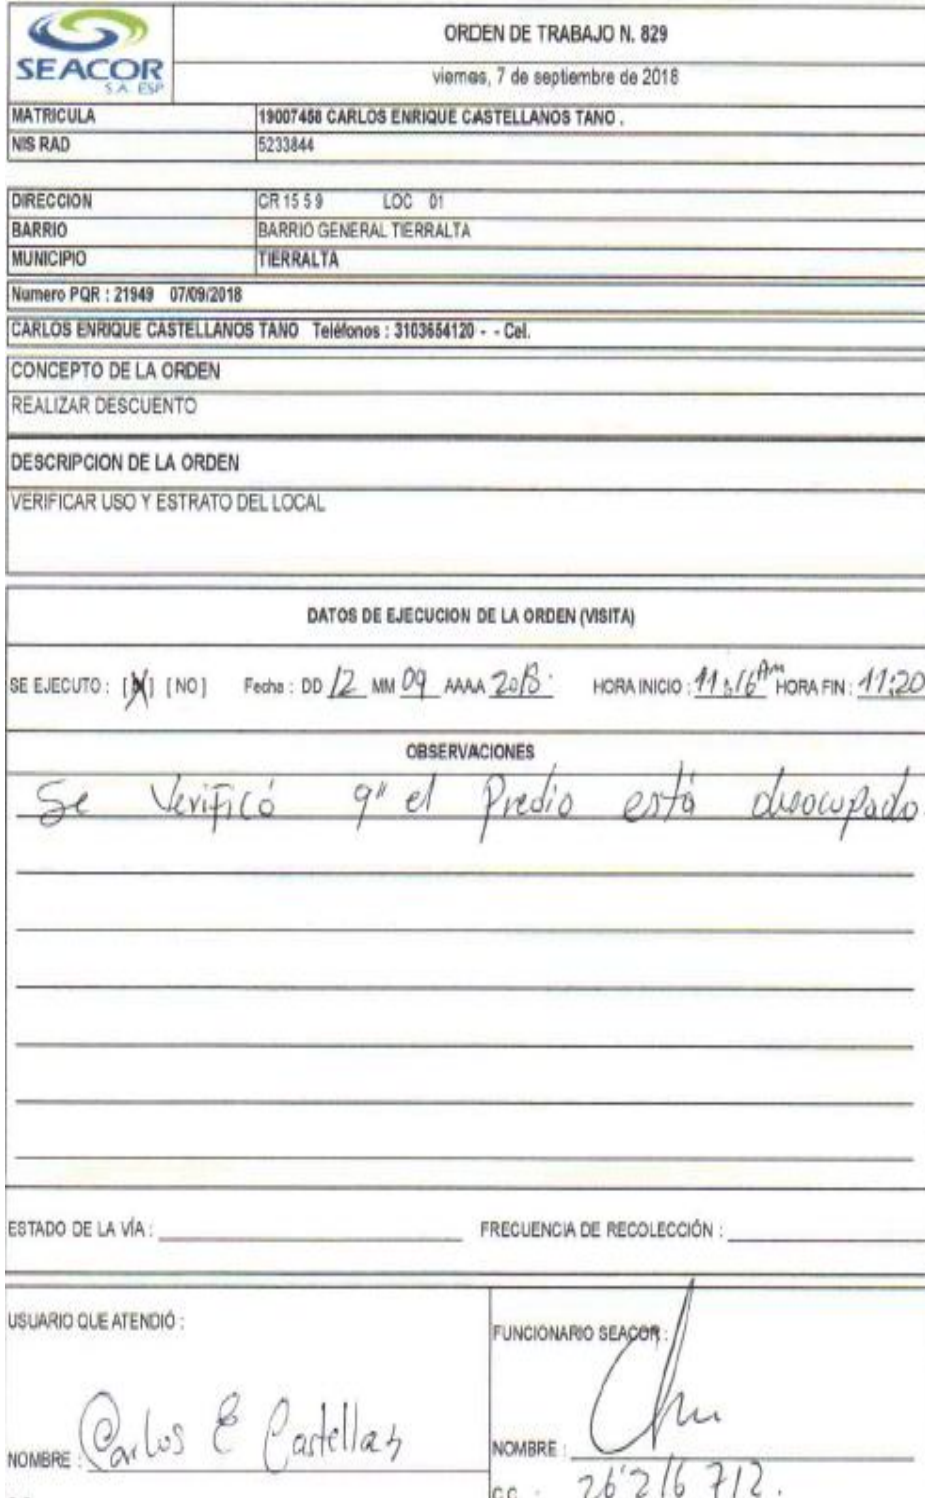 SEACOR
S.A. ESP
ORDEN DE TRABAJO N. 829
viernes, 7 de septiembre de 2018
MATRICULA 19007458 CARLOS ENRIQUE CASTELLANOS TANO .
NIS RAD 5233844
DIRECCION CR 15 5 9 LOC 01
BARRIO BARRIO GENERAL TIERRALTA
MUNICIPIO TIERRALTA
Numero PQR : 21949 07/09/2018
CARLOS ENRIQUE CASTELLANOS TANO Teléfonos : 3103654120 - - Cel.
CONCEPTO DE LA ORDEN
REALIZAR DESCUENTO
DESCRIPCION DE LA ORDEN
VERIFICAR USO Y ESTRATO DEL LOCAL
DATOS DE EJECUCION DE LA ORDEN (VISITA)
SE EJECUTO : [X] [ NO ] Fecha : DD 12 MM 09 AAAA 2018. HORA INICIO : 11:16 Am HORA FIN : 11:20
OBSERVACIONES
Se Verificó q" el Predio está desocupado.
ESTADO DE LA VÍA : FRECUENCIA DE RECOLECCIÓN :
USUARIO QUE ATENDIÓ : FUNCIONARIO SEACOR :
NOMBRE : Carlos E Castellan NOMBRE :
C.C. : 26'216 712.